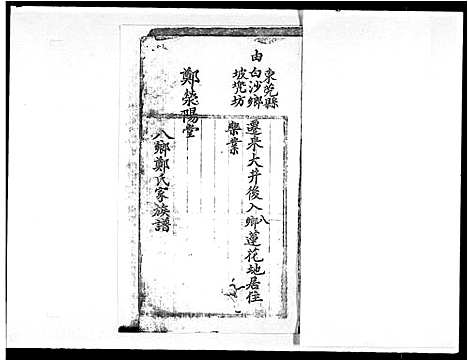 由
東莞縣
白沙鄉
坡坑坊
遷來大井後入八鄉蓮花地居住
樂業
鄭滎陽堂
八鄉鄭氏家族譜